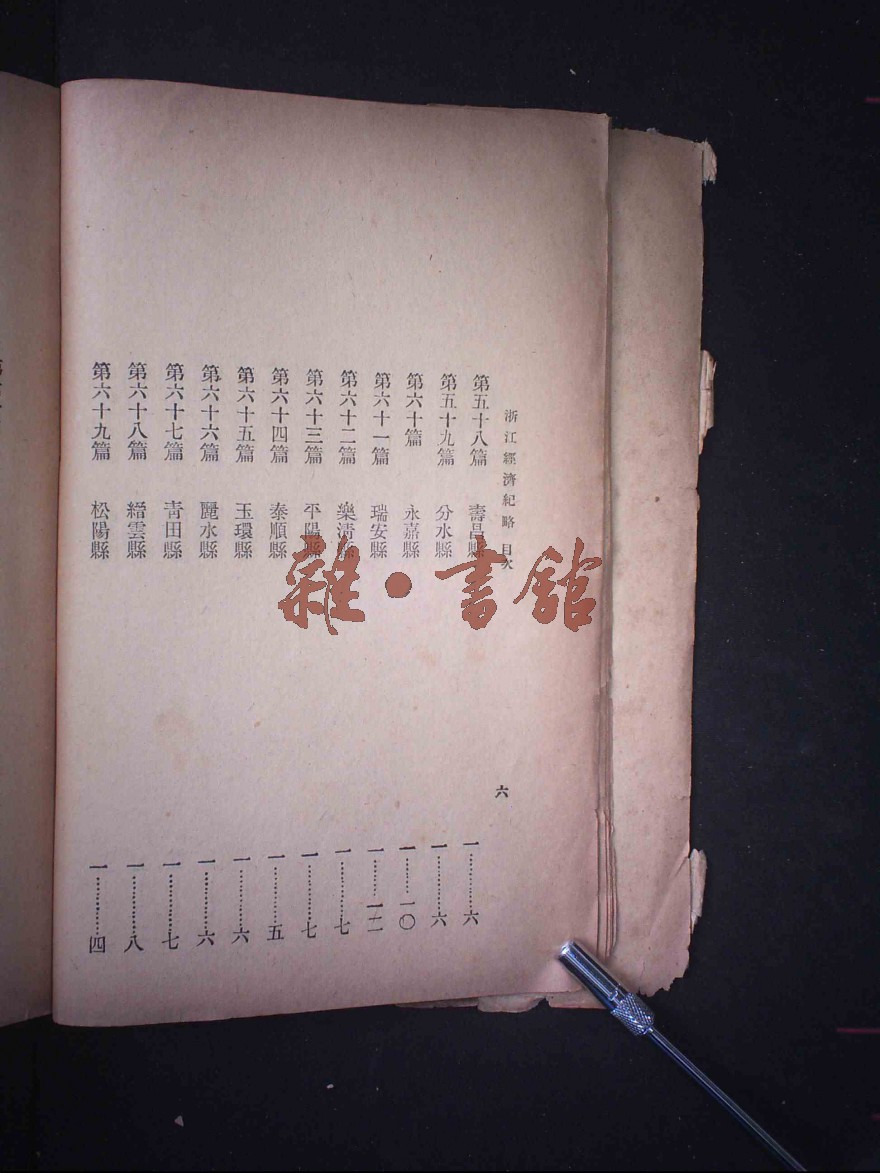 浙江經濟紀略 目次 六
第五十八篇 壽昌縣 一…………六
第五十九篇 分水縣 一…………六
第六十篇 永嘉縣 一………一〇
第六十一篇 瑞安縣 一………一二
第六十二篇 樂清縣 一…………七
第六十三篇 平陽縣 一…………七
第六十四篇 泰順縣 一…………五
第六十五篇 玉環縣 一…………六
第六十六篇 麗水縣 一…………六
第六十七篇 青田縣 一…………七
第六十八篇 縉雲縣 一…………八
第六十九篇 松陽縣 一…………四
雜·書館